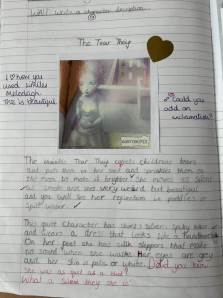 WALT: Write a character description
☺
The Tear Thief
I ♡ how you
used similes
Melediah.
This is beautiful.
Could you
add an
exclamation?
The invisible Tear Thief collects childrens tears
and puts them in her sack and sprinkles them on
the moon to make it brighter. She moves like silent
smoke and is very weird but beautiful
and you will see her reflection in puddles or
spilt water.
This quiet character has short silver, spiky hair
and wears a dress that looks like a
On her feet she has silk slippers that make
no sound when she walks. Her eyes are grey
and her skin is pale white. Did you know
She was as quiet as a
What a she is